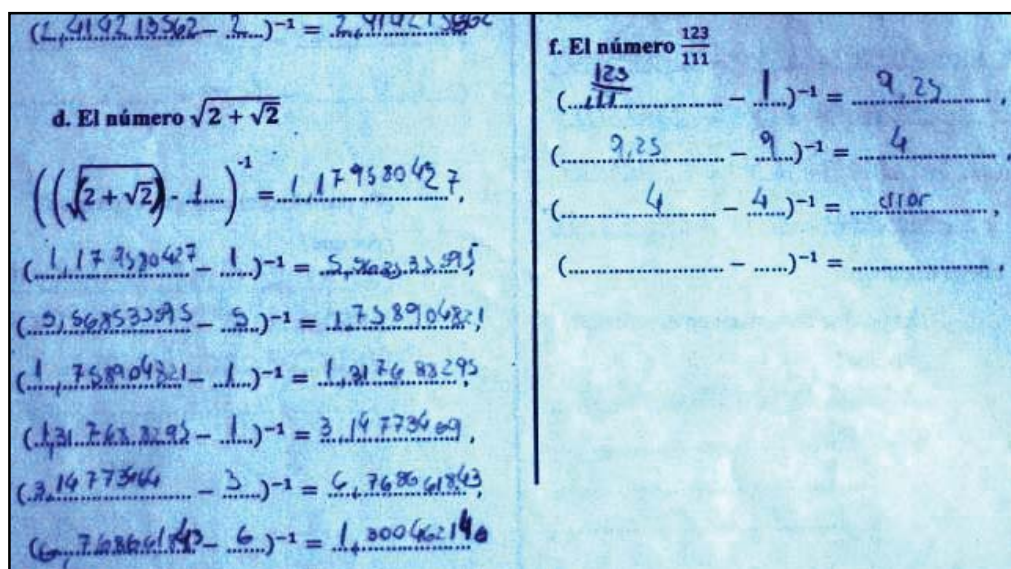 (2,414213562 – 2)⁻¹ = 2,414213562
d. El número √(2 + √2)
((√(2 + √2)) - 1)⁻¹ = 1,179580427,
(1,179580427 – 1)⁻¹ = 5,568533595,
(5,568533595 – 5)⁻¹ = 1,758904821,
(1,758904821 – 1)⁻¹ = 1,317688295,
(1,317688295 – 1)⁻¹ = 3,14773469,
(3,1477346 – 3)⁻¹ = 6,768661843,
(6,768661843 – 6)⁻¹ = 1,300462146
f. El número 123/111
(123/111 – 1)⁻¹ = 9,25,
(9,25 – 9)⁻¹ = 4,
(4 – 4)⁻¹ = error,
(........ – ......)⁻¹ = ........,